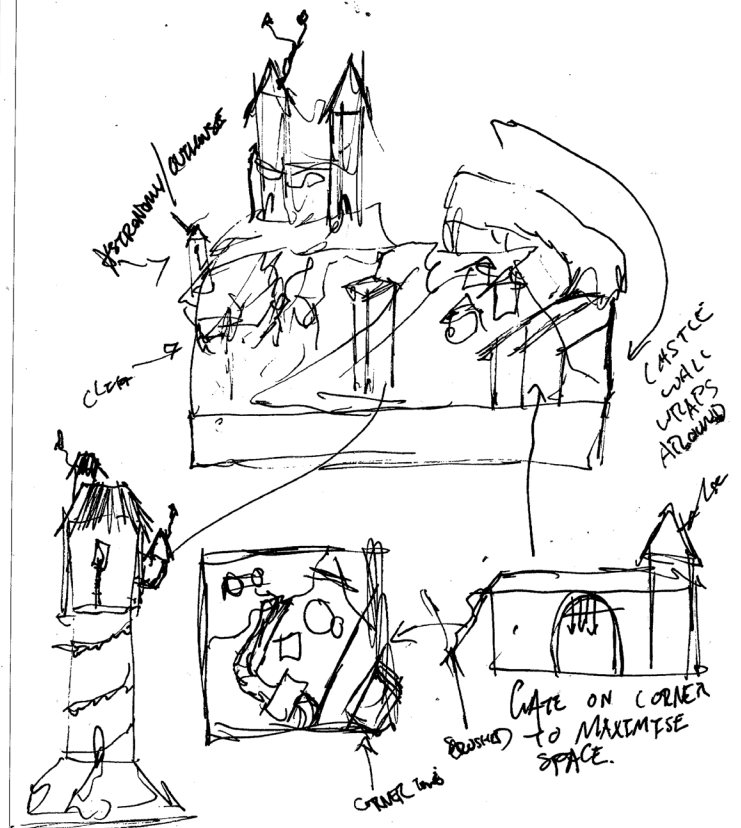 ASTRONOMY/OUTHOUSE
CLIFF
CASTLE
WALL
WRAPS
AROUND
GATE ON CORNER
TO MAXIMISE
SPACE.
CORNER